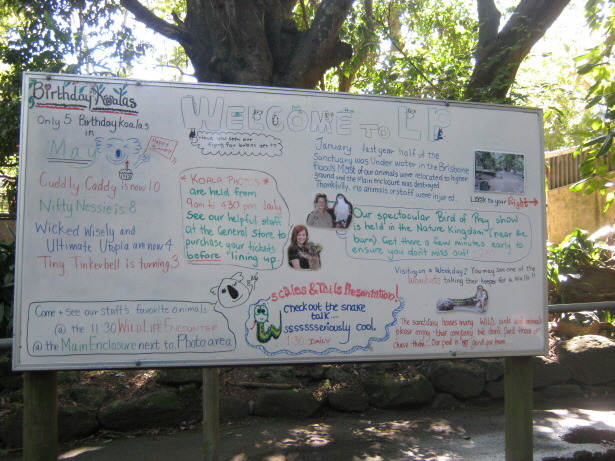 Birthday Koalas
Only 5 Birthdaykoalas
in
May
Happy Birthday
Cuddly Caddy is now 10
Nifty Nessie is 8
Wickedly Wisely and
Ultimate Utopia are now 4
Tiny Tinkerbell is turning 3
Come + see our staff's favorite animals
@ the 11:30 WILDLIFE ENCOUNTER
@ the Main Enclosure next to Photo area
WELCOME TO LP
Have you seen our
KOALA PHOTOS
are held from
9am to 4:30 pm. daily
See our helpful staff
at the General Store to
purchase your tickets
before lining up.
January last year half of the
Sanctuary was Under water in the Brisbane
floods. Most of our animals were relocated to higher
ground and the Main enclosure was destroyed.
Thankfully, no animals or staff were injured.
Look to your Right
Our spectacular Bird of Prey show
is held in the Nature Kingdom (near the
barn). Get there a few minutes early to
ensure you don't miss out!
Visiting on a Weekday? You may see one of the
Wombats taking their keeper for a Walk!!
Scales & Tails Presentation!
checkout the snake
talk...
ssssssseriously cool.
1:30 DAILY
The sanctuary houses many Wild birds and animals
please enjoy their company but don't feed them or
chase them!! Our food is not good for them.